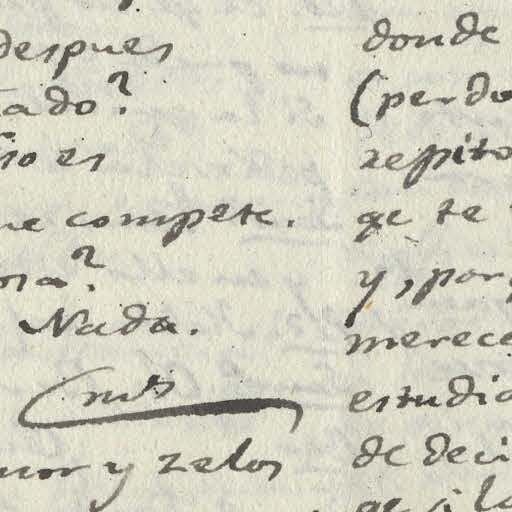 despues
tado?
no es
ue compete.
osa?
Nada.
mor y zelos
donde
(perdo
repito
qe te
y, porq
merece
estudia
de deci
qe si la